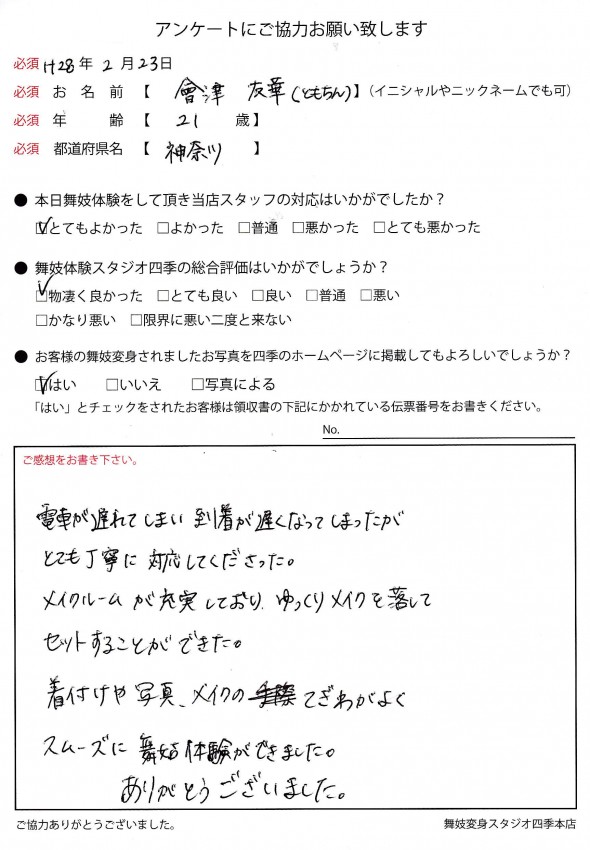 アンケートにご協力お願い致します
必須 H28年 2月23日
必須 お名前【 會津 友華(ともちん)】(イニシャルやニックネームでも可)
必須 年齢【 21 歳】
必須 都道府県名【 神奈川 】
● 本日舞妓体験をして頂き当店スタッフの対応はいかがでしたか？
☑とてもよかった □よかった □普通 □悪かった □とても悪かった
● 舞妓体験スタジオ四季の総合評価はいかがでしょうか？
☑物凄く良かった □とても良い □良い □普通 □悪い
□かなり悪い □限界に悪い二度と来ない
● お客様の舞妓変身されましたお写真を四季のホームページに掲載してもよろしいでしょうか？
☑はい □いいえ □写真による
「はい」とチェックをされたお客様は領収書の下記にかかれている伝票番号をお書きください。
No.
ご感想をお書き下さい。
電車が遅れてしまい到着が遅くなってしまったが
とても丁寧に対応してくださった。
メイクルームが充実しており、ゆっくりメイクを落して
セットすることができた。
着付けや写真、メイクの てぎわがよく
スムーズに舞妓体験ができました。
ありがとうございました。
ご協力ありがとうございました。
舞妓変身スタジオ四季本店